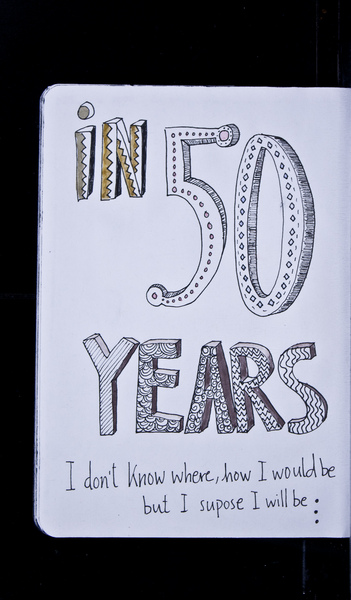 iN
50
YEARS
I don't Know where, how I would be
but I supose I will be :